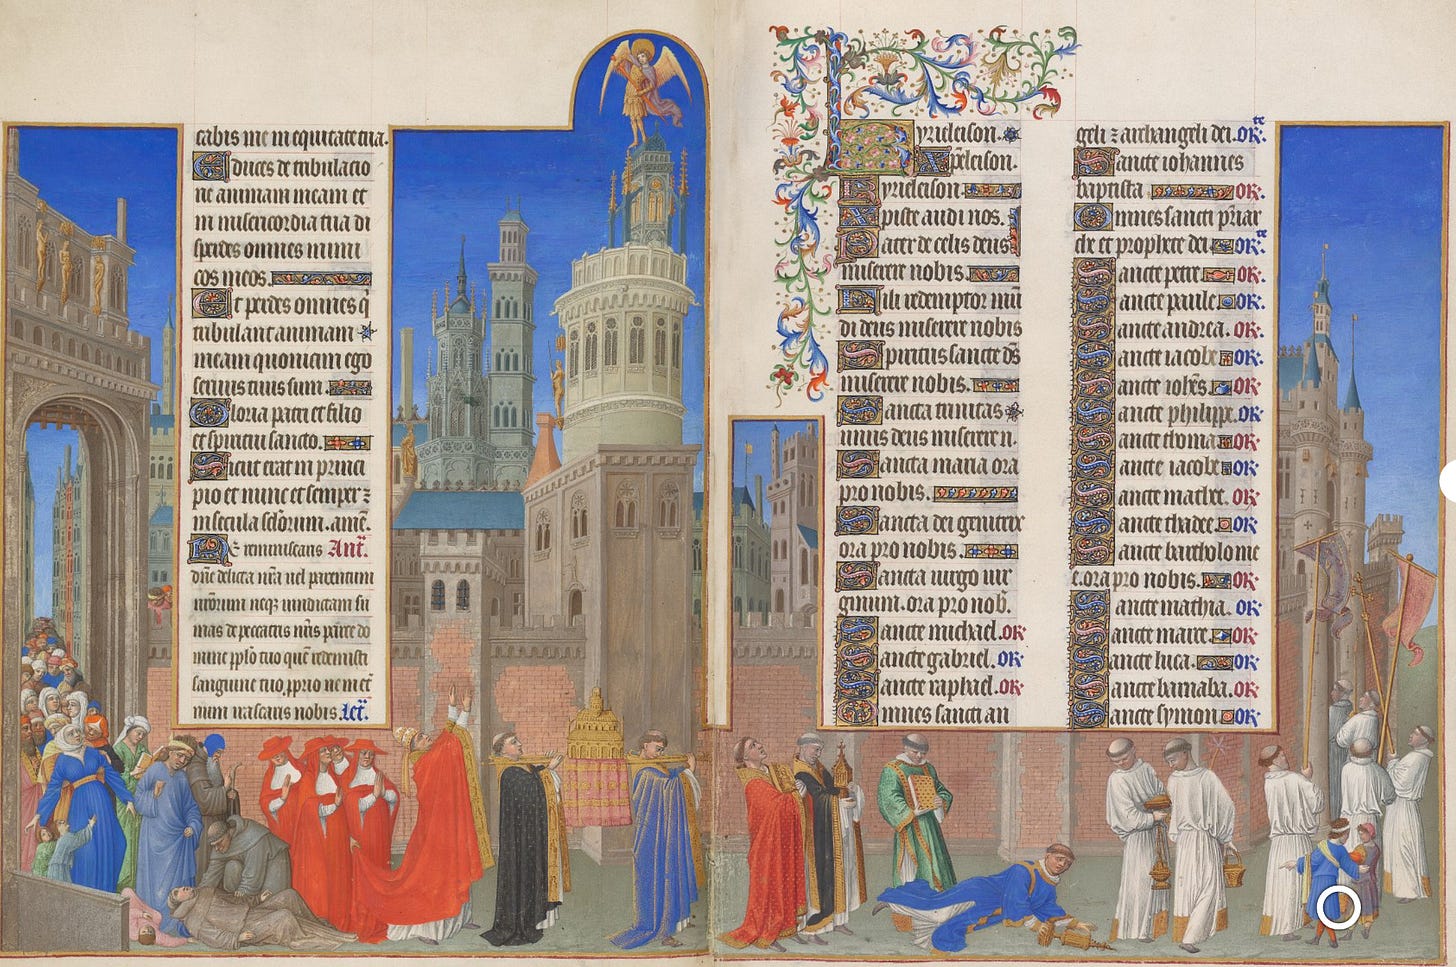 cabis me in equitate tua.
Educes de tribulatio
ne animam meam et
in misericordia tua di
sperdes omnes inimi
cos meos.
Et perdes omnes q̄
tribulant animam
meam quoniam ego
seruus tuus sum.
Gloria patri et filio
et spiritui sancto.
Sicut erat in princi
pio et nunc et semper ⁊
in secula sc̄lorum. amē.
Ne reminiscaris Ant̄.
dn̄e delicta nr̄a uel parentum
nr̄orum neq; uindictam su
mas de peccatis nr̄is parce do
mine pplo tuo quē redemisti
sanguine tuo pprio ne in et̄
num irascaris nobis. Let̄.
Kyrieleison.
Xp̄eleison.
Kyrieleison
Xpiste audi nos.
Pater de celis deus
miserere nobis.
Fili redemptor mū
di deus miserere nobis
Spiritus sancte d̄s
miserere nobis.
Sancta trinitas
unus deus miserere n.
Sancta maria ora
pro nobis.
Sancta dei genitrix
ora pro nobis.
Sancta uirgo uir
ginum. ora pro nob̄.
Sancte michael. or
Sancte gabriel. or
Sancte raphael. or
Omnes sancti an
geli ⁊ archangeli dei. or̄te
Sancte iohannes
baptista or
Omnes sancti p̄riar
che et prophete dei or̄te
Sancte petre or
Sancte paule or
Sancte andrea. or
Sancte iacobe or
Sancte ioh̄es or
Sancte philippe. or
Sancte thoma or
Sancte iacobe or
Sancte mathee. or
Sancte thadee. or
Sancte bartholome
e. ora pro nobis. or
Sancte mathia. or
Sancte marce or
Sancte luca. or
Sancte barnaba. or
Sancte symon or